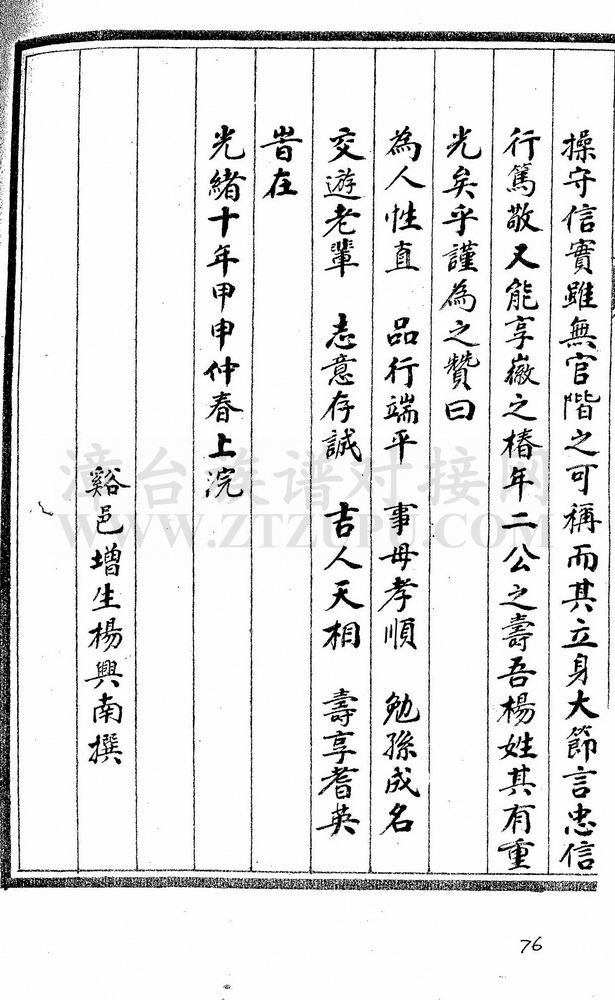 操守信實雖無官階之可稱而其立身大節言忠信
行篤敬又能享嶶之椿年二公之壽吾楊姓其有重
光矣乎謹為之贊曰
為人性直 品行端平 事母孝順 勉孫成名
交遊老輩 志意存誠 吉人天相 壽享耆英
旹在
光緒十年甲申仲春上浣
谿邑增生楊興南撰
漳台族谱对接网
WWW.ZTZUPU.COM
76